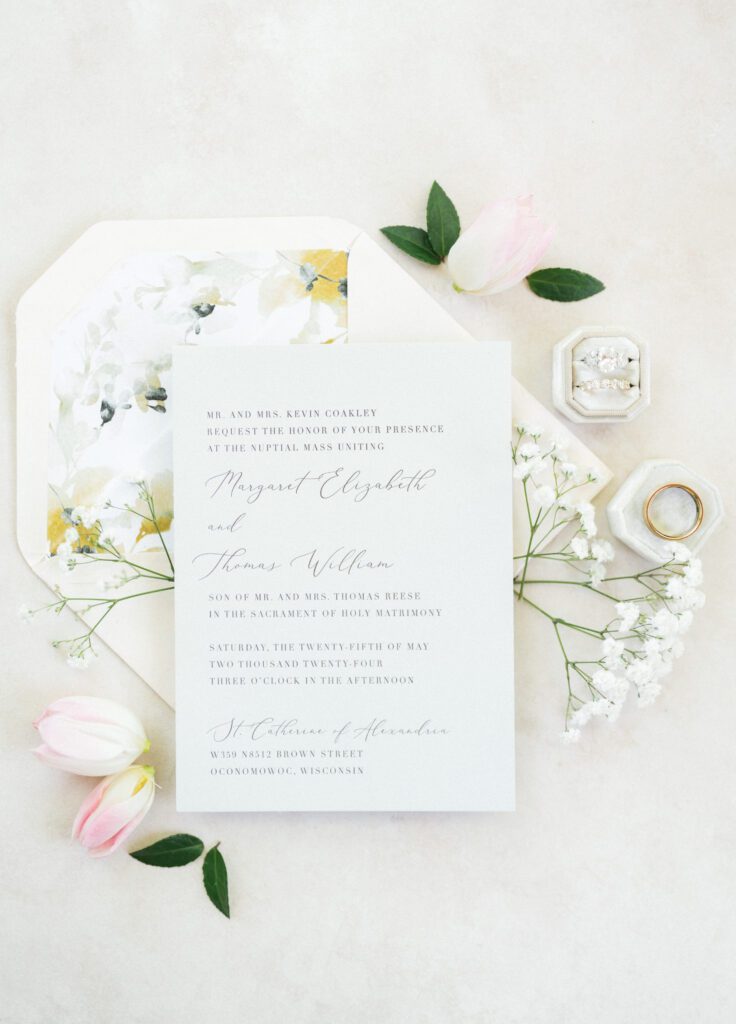 MR. AND MRS. KEVIN COAKLEY
REQUEST THE HONOR OF YOUR PRESENCE
AT THE NUPTIAL MASS UNITING
Margaret Elizabeth
and
Thomas William
SON OF MR. AND MRS. THOMAS REESE
IN THE SACRAMENT OF HOLY MATRIMONY
SATURDAY, THE TWENTY-FIFTH OF MAY
TWO THOUSAND TWENTY-FOUR
THREE O'CLOCK IN THE AFTERNOON
St. Catherine of Alexandria
W359 N8512 BROWN STREET
OCONOMOWOC, WISCONSIN